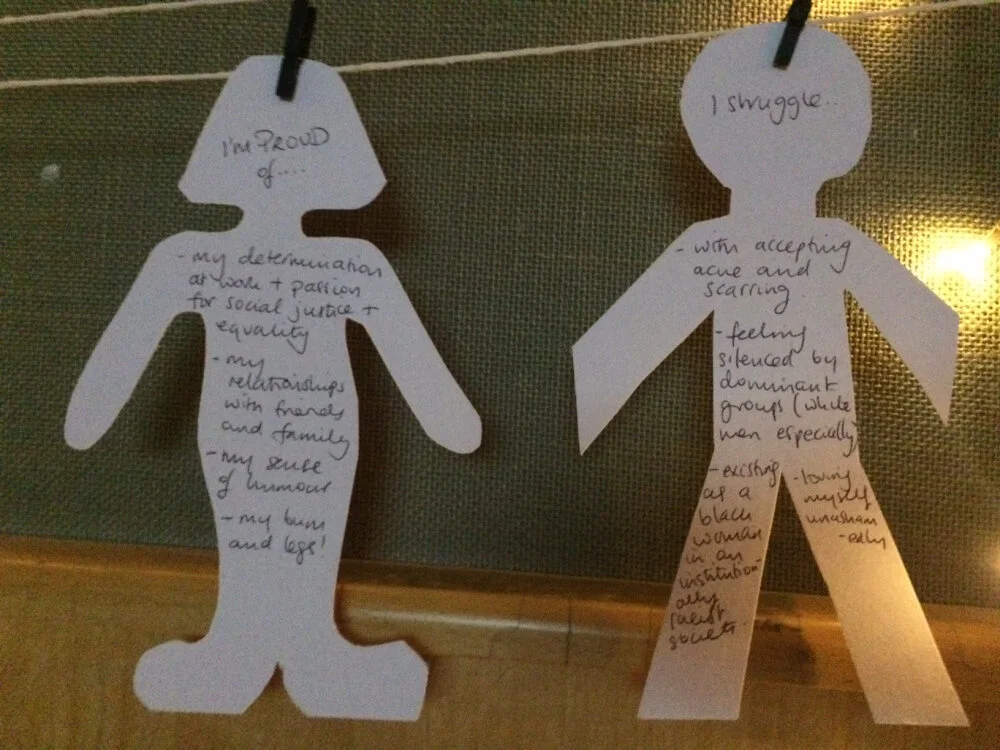 I'm PROUD
of....
- my determination
at work + passion
for social justice +
equality
- my
relationships
with friends
and family
- my sense
of humour
- my bum
and legs!
I struggle..
- with accepting
acne and
scarring.
- feeling
silenced by
dominant
groups (white
men especially)
- existing
as a
black
woman
in an
institution-
ally
racist
society.
- loving
myself
unasham
-edly